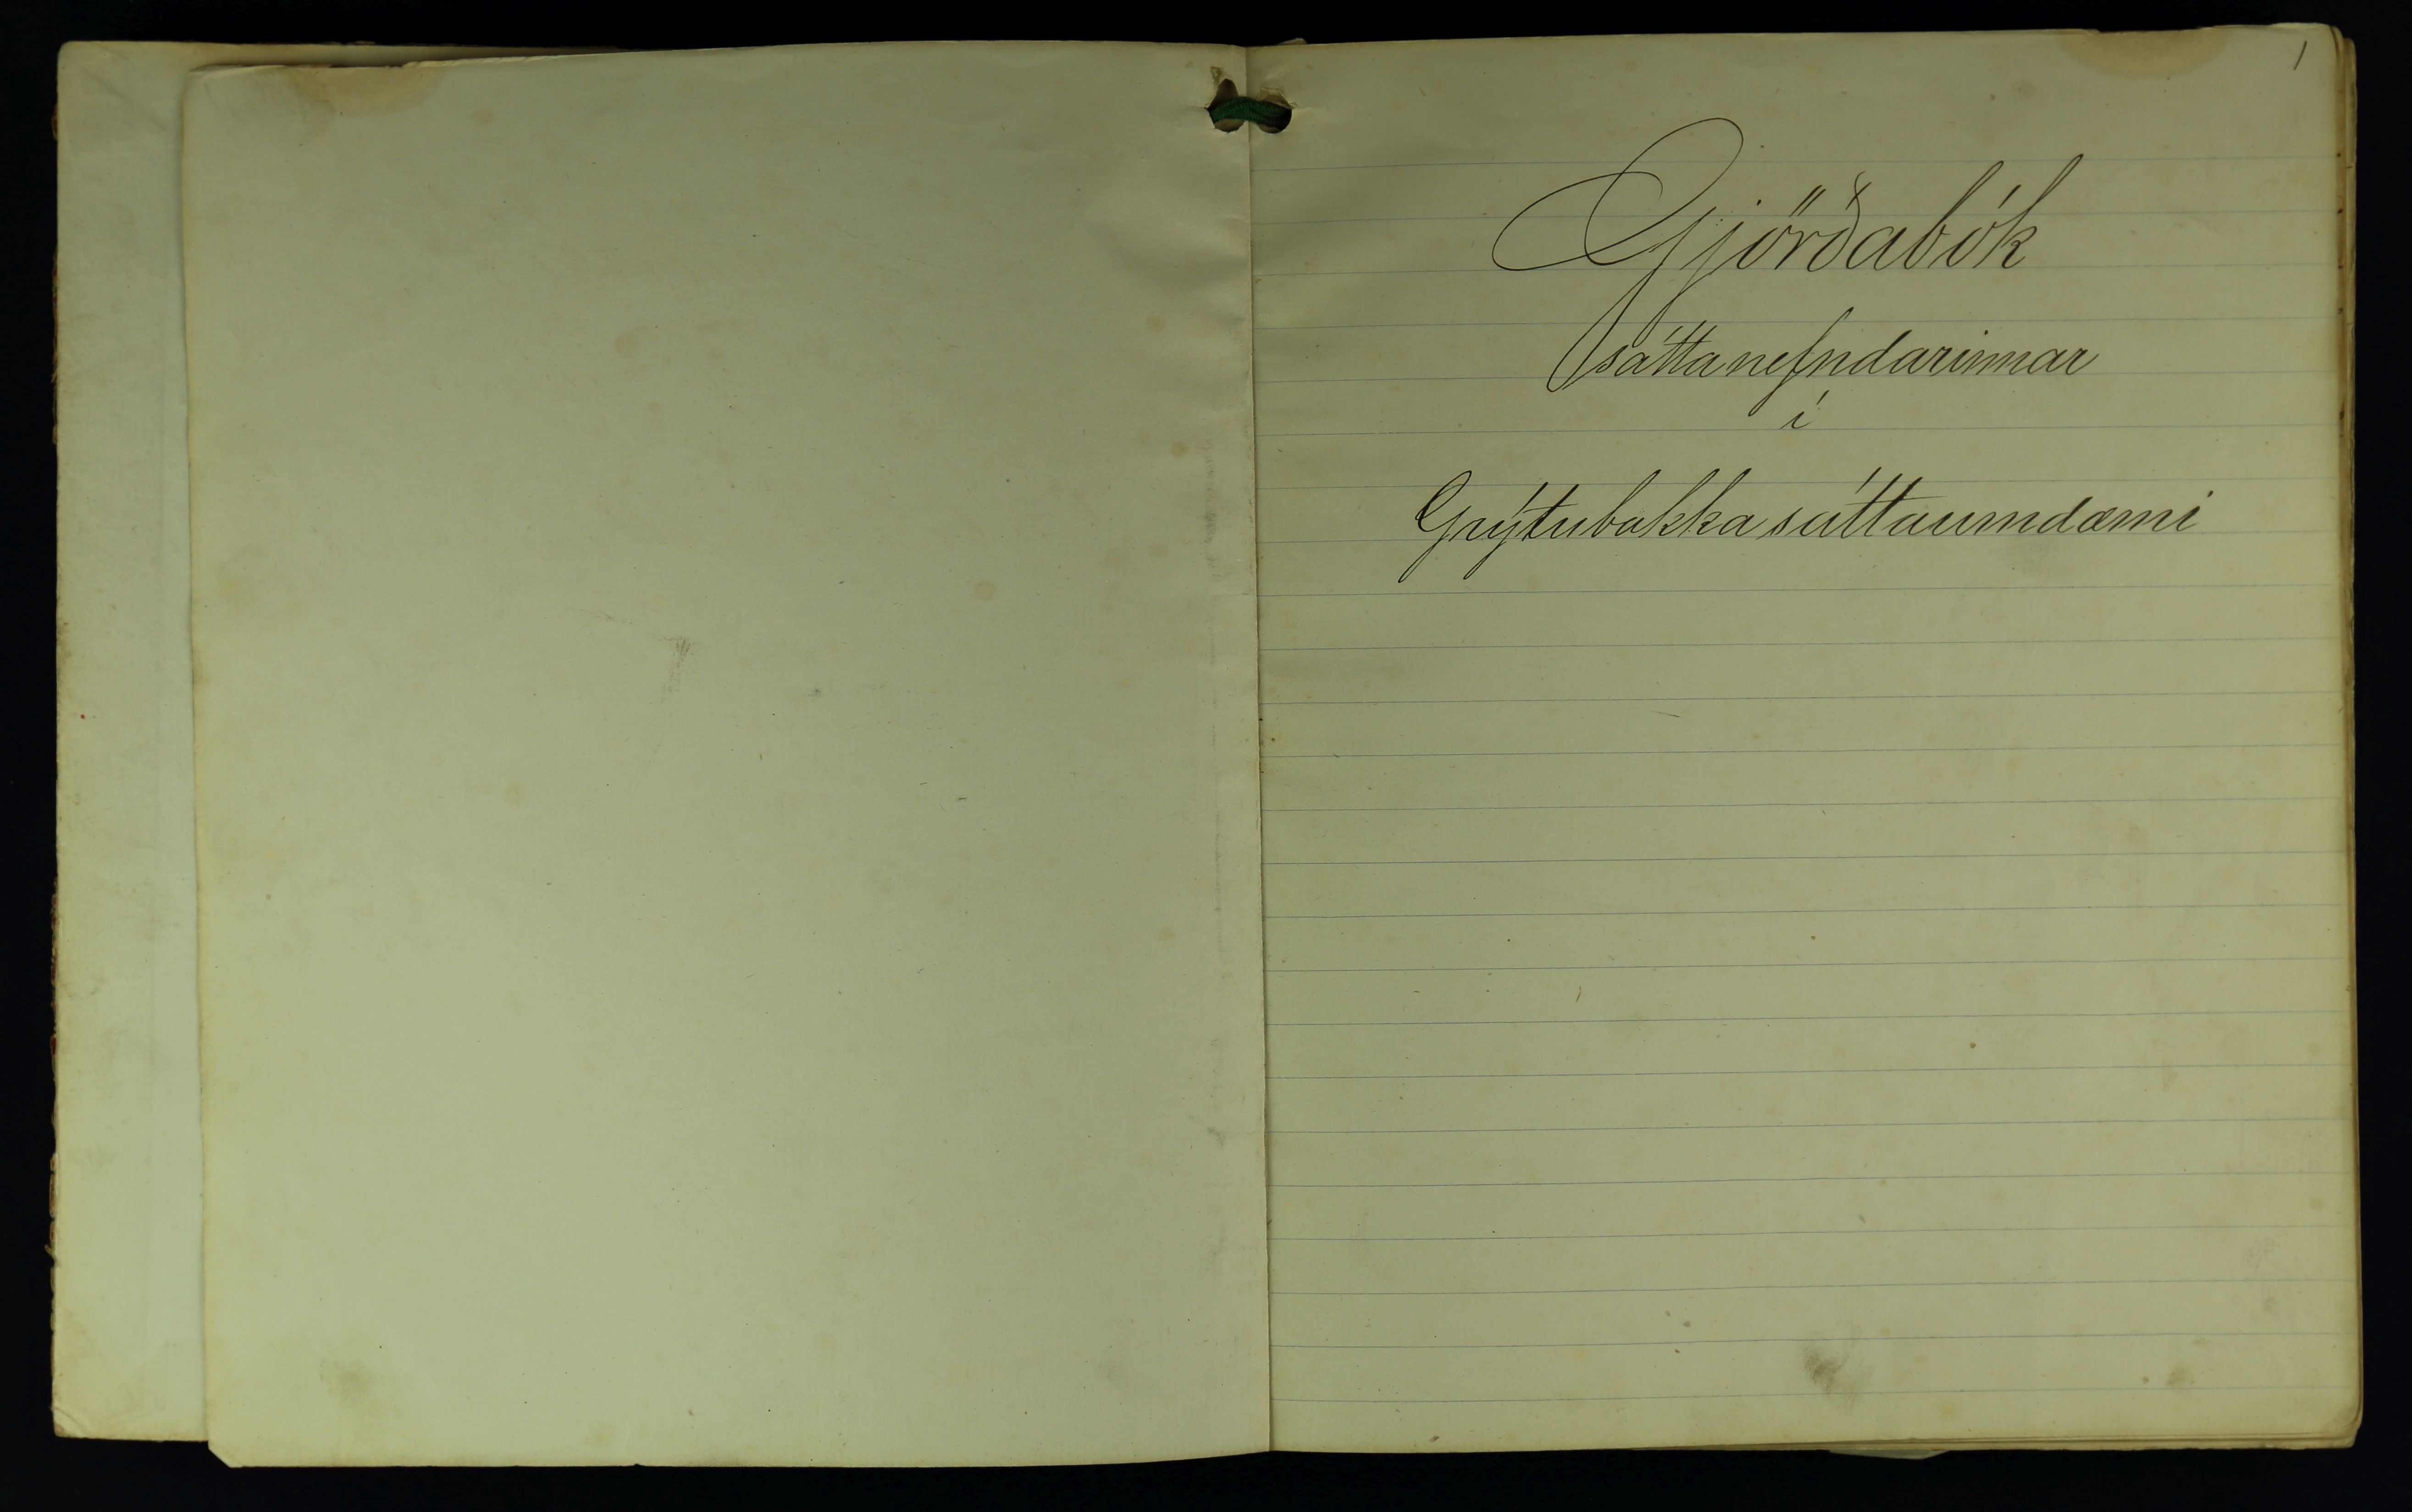 1
Gjörðabók
sáttanefndarinnar
í
Grýtubakkasáttaumdæmi